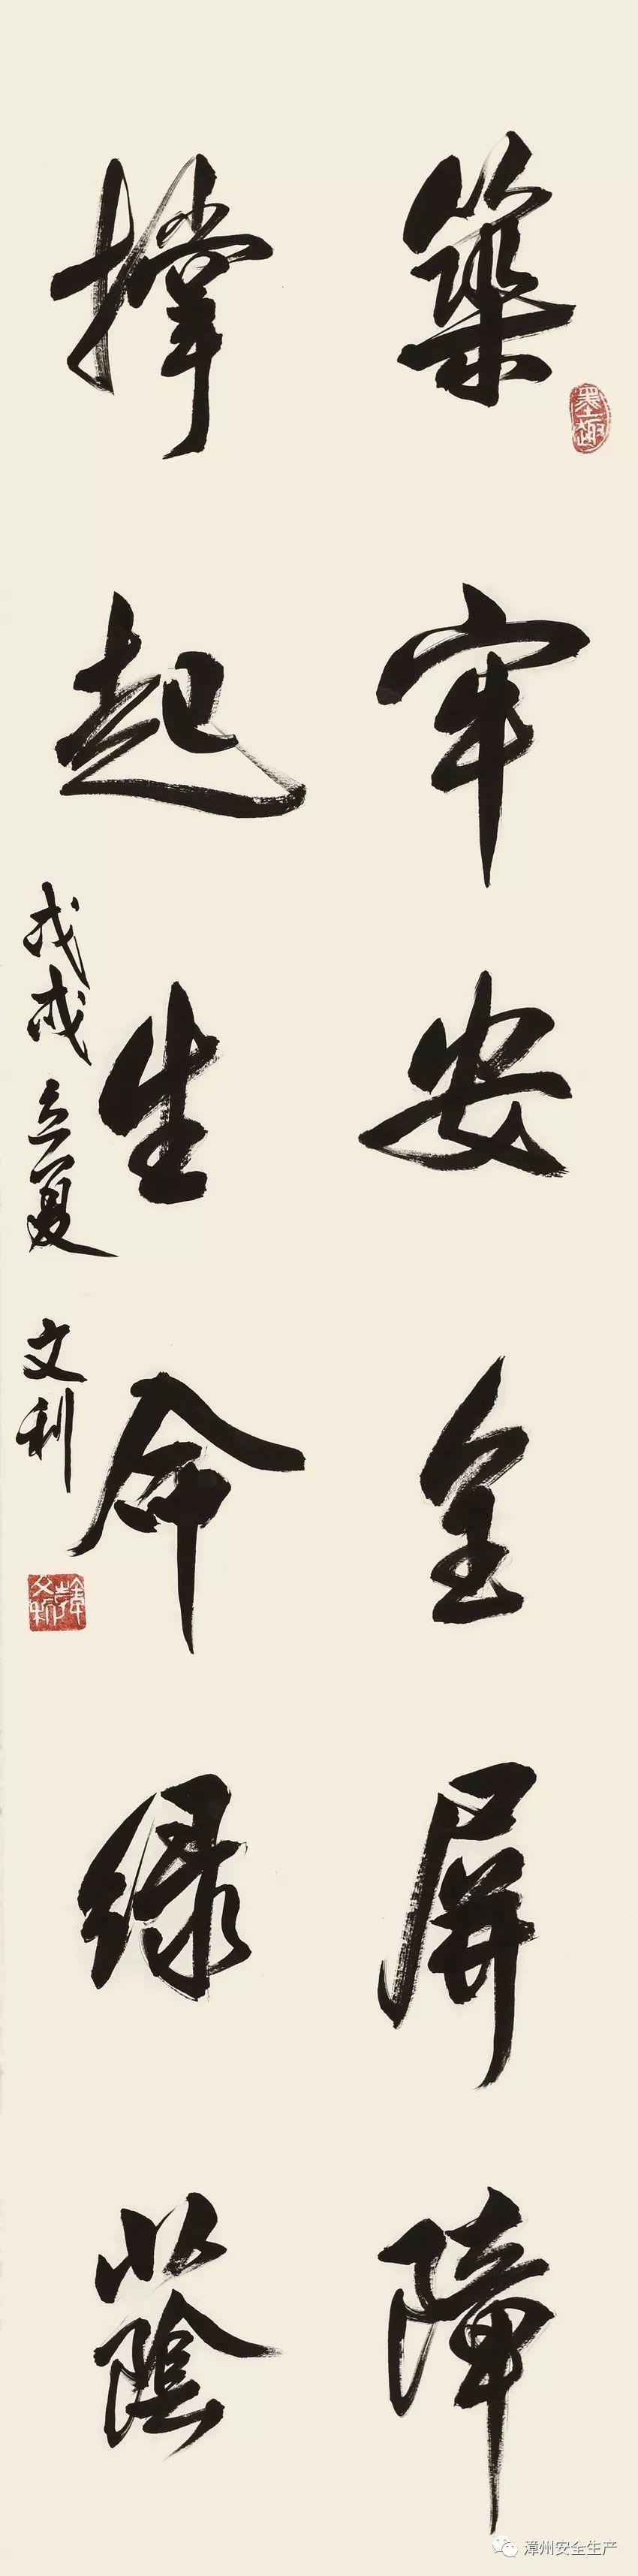 築牢安全屏障
撑起生命绿蔭
戊戌立夏 文利
墨趣
漳州安全生产